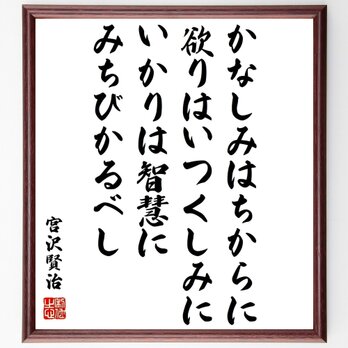 かなしみはちからに
欲りはいつくしみに
いかりは智慧に
みちびかるべし
宮沢賢治